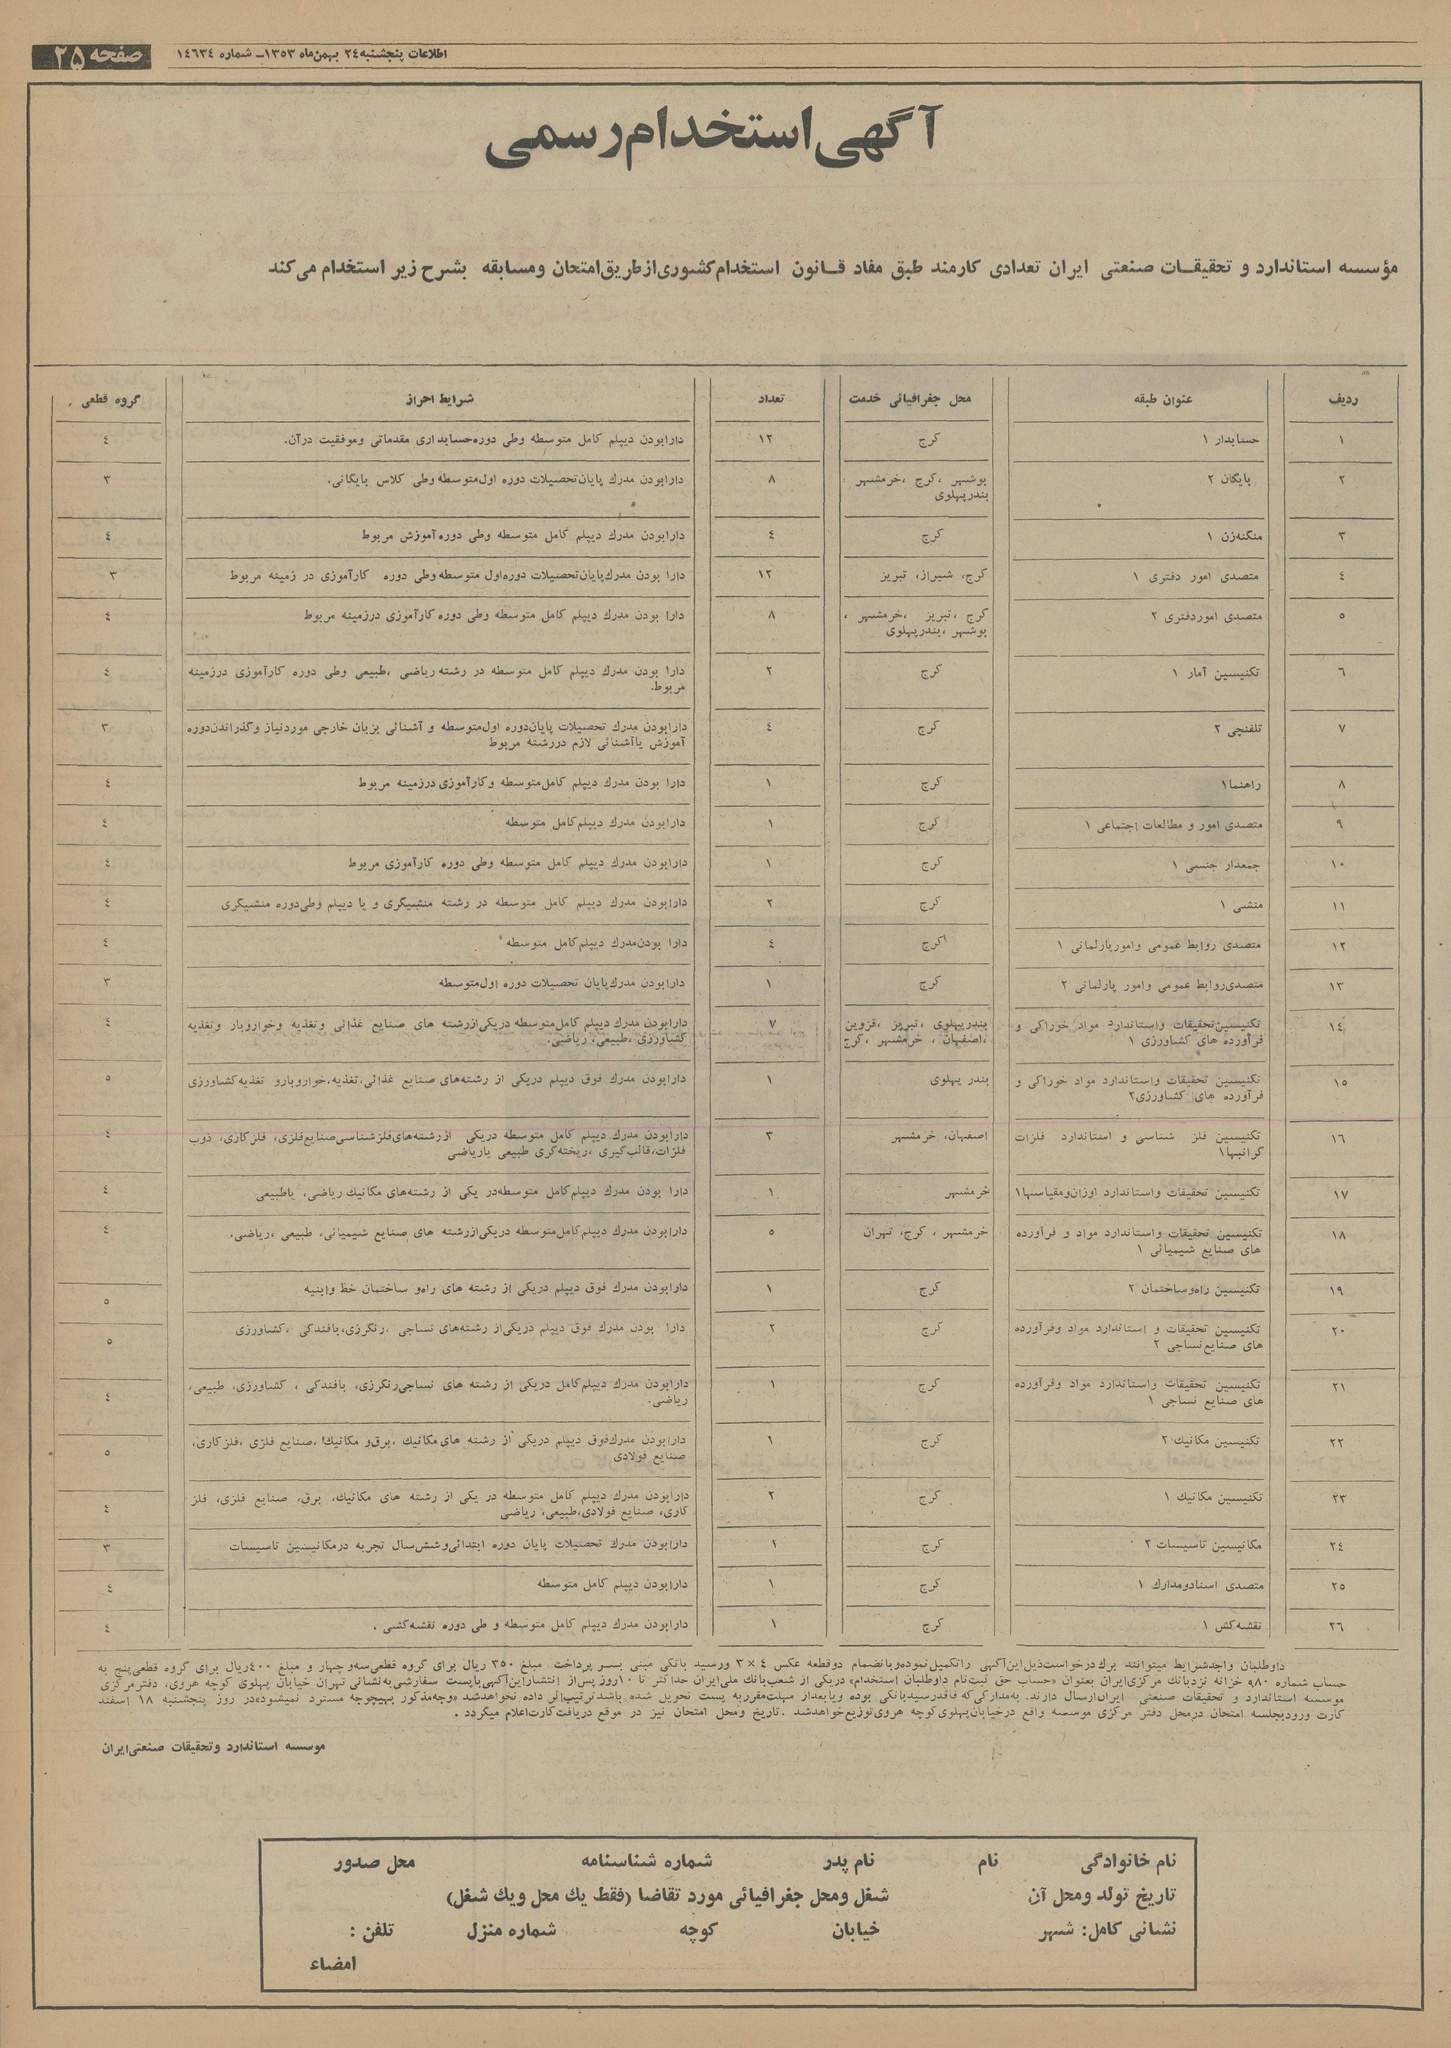 صفحه ۲۵
اطلاعات پنجشنبه ۲٤ بهمن‌ماه ۱۳۵۳ـ شماره ۱٤٦۳٤
آگهی استخدام رسمی
مؤسسه استاندارد و تحقیقات صنعتی ایران تعدادی کارمند طبق مفاد قانون استخدام کشوری از طریق امتحان و مسابقه بشرح زیر استخدام می‌کند
ردیف عنوان طبقه محل جغرافیائی خدمت تعداد شرایط احراز گروه قطعی
۱ حسابدار ۱ کرج ۱۲ دارا بودن دیپلم کامل متوسطه وطی دوره حسابداری مقدماتی وموفقیت درآن. ٤
۲ بایگان ۲ بوشهر ،کرج ،خرمشهر ۸ دارابودن مدرك پایان تحصیلات دوره اول متوسطه وطی کلاس بایگانی. ۳
بندرپهلوی
۳ منگنه‌زن ۱ کرج ٤ دارابودن مدرك دیپلم کامل متوسطه وطی دوره آموزش مربوط ٤
٤ متصدی امور دفتری ۱ کرج، شیراز، تبریز ۱۲ دارا بودن مدرك پایان تحصیلات دوره اول متوسطه وطی دوره کارآموزی در زمینه مربوط ۳
۵ متصدی اموردفتری ۲ کرج ،تبریز ،خرمشهر ، ۸ دارا بودن مدرك دیپلم کامل متوسطه وطی دوره کارآموزی درزمینه مربوط ٤
بوشهر ،بندرپهلوی
٦ تکنیسین آمار ۱ کرج ۲ دارا بودن مدرك دیپلم کامل متوسطه در رشته ریاضی ،طبیعی وطی دوره کارآموزی درزمینه ٤
مربوط.
۷ تلفنچی ۲ کرج ٤ دارابودن مدرك تحصیلات پایان دوره اول متوسطه و آشنائی بزبان خارجی موردنیاز وگذراندن دوره ۳
آموزش یاآشنائی لازم دررشته مربوط
۸ راهنما ۱ کرج ۱ دارا بودن مدرك دیپلم کامل متوسطه وکارآموزی درزمینه مربوط ٤
۹ متصدی امور و مطالعات اجتماعی ۱ کرج ۱ دارابودن مدرك دیپلم کامل متوسطه ٤
۱۰ جمعدار جنسی ۱ کرج ۱ دارابودن مدرك دیپلم کامل متوسطه وطی دوره کارآموزی مربوط ٤
۱۱ منشی ۱ کرج ۲ دارابودن مدرك دیپلم کامل متوسطه در رشته منشیگری و یا دیپلم وطی دوره منشیگری ٤
۱۲ متصدی روابط عمومی وامورپارلمانی ۱ کرج ٤ دارا بودن مدرك دیپلم کامل متوسطه ٤
۱۳ متصدی روابط عمومی وامور پارلمانی ۲ کرج ۱ دارابودن مدرك پایان تحصیلات دوره اول متوسطه ۳
۱٤ تکنیسین تحقیقات واستاندارد مواد خوراکی و بندرپهلوی ، تبریز ،قزوین ۷ دارابودن مدرك دیپلم کامل متوسطه دریکی از رشته های صنایع غذائی وتغذیه وخواروبار وتغذیه ٤
فرآورده های کشاورزی ۱ ،اصفهان ، خرمشهر ،کرج کشاورزی ،طبیعی، ریاضی.
۱۵ تکنیسین تحقیقات واستاندارد مواد خوراکی و بندر پهلوی ۱ دارابودن مدرك فوق دیپلم دریکی از رشته‌های صنایع غذائی،تغذیه،خواروبارو تغذیه کشاورزی ۵
فرآورده های کشاورزی۲
۱٦ تکنیسین فلز شناسی و استاندارد فلزات اصفهان، خرمشهر ۳ دارابودن مدرك دیپلم کامل متوسطه دریکی از رشته‌های فلزشناسی صنایع فلزی، فلزکاری، ذوب ٤
گرانبها۱ فلزات،قالب‌گیری ،ریخته‌گری طبیعی یاریاضی
۱۷ تکنیسین تحقیقات واستاندارد اوزان ومقیاسها۱ خرمشهر ۱ دارا بودن مدرك دیپلم کامل متوسطه در یکی از رشته‌های مکانیك ریاضی، یاطبیعی ٤
۱۸ تکنیسین تحقیقات واستاندارد مواد و فرآورده خرمشهر ، کرج، تهران ۵ دارابودن مدرك دیپلم کامل متوسطه دریکی ازرشته های صنایع شیمیائی، طبیعی ،ریاضی. ٤
های صنایع شیمیائی ۱
۱۹ تکنیسین راه وساختمان ۲ کرج ۱ دارابودن مدرك فوق دیپلم دریکی از رشته های راه و ساختمان خط وابنیه ۵
۲۰ تکنیسین تحقیقات و استاندارد مواد وفرآورده کرج ۲ دارا بودن مدرك فوق دیپلم دریکی از رشته‌های نساجی ،رنگرزی،بافندگی ،کشاورزی ۵
های صنایع نساجی ۲
۲۱ تکنیسین تحقیقات واستاندارد مواد وفرآورده کرج ۱ دارابودن مدرك دیپلم کامل دریکی از رشته های نساجی رنگرزی، بافندگی ، کشاورزی، طبیعی، ٤
های صنایع نساجی ۱ ریاضی.
۲۲ تکنیسین مکانیك ۲ کرج ۱ دارابودن مدرك فوق دیپلم دریکی از رشته های مکانیك ،برق و مکانیك ،صنایع فلزی ،فلزکاری، ۵
صنایع فولادی
۲۳ تکنیسین مکانیك ۱ کرج ۲ دارابودن مدرك دیپلم کامل متوسطه در یکی از رشته های مکانیك، برق، صنایع فلزی، فلز ٤
کاری، صنایع فولادی،طبیعی، ریاضی
۲٤ مکانیسین تاسیسات ۲ کرج ۱ دارابودن مدرك تحصیلات پایان دوره ابتدائی وشش سال تجربه درمکانیسین تاسیسات ۳
۲۵ متصدی اسنادومدارك ۱ کرج ۱ دارابودن دیپلم کامل متوسطه ٤
۲٦ نقشه‌کش ۱ کرج ۱ دارابودن مدرك دیپلم کامل متوسطه و طی دوره نقشه‌کشی . ٤
داوطلبان واجدشرایط میتوانند برك درخواست ذیل این آگهی راتکمیل نموده وبانضمام دوقطعه عکس ٤ × ۳ ورسید بانکی مبنی بـر پرداخت مبلغ ۳۵۰ ریال برای گروه قطعی سه وچهار و مبلغ ٤۰۰ ریال برای گروه قطعی پنج به
حساب شماره ۹۸۰ خزانه نزدبانك مرکزی ایران بعنوان «حساب حق ثبت نام داوطلبان استخدام» دریکی از شعب بانك ملی ایران حداکثر تا ۱۰ روز پس از انتشار این آگهی باپست سفارشی به نشانی تهران خیابان پهلوی کوچه هروی، دفتر مرکزی
موسسه استاندارد و تحقیقات صنعتی ایران ارسال دارند. به مدارکی که فاقدرسیدبانکی بوده ویابعداز مهلت مقرربه پست تحویل شده باشد ترتیب‌اثر داده نخواهدشد «وجه مذکور بهیچوجه مسترد نمیشود» در روز پنجشنبه ۱۸ اسفند
کارت ورودبجلسه امتحان درمحل دفتر مرکزی موسسه واقع درخیابان پهلوی کوچه هروی توزیع خواهدشد .تاریخ ومحل امتحان نیز در موقع دریافت کارت اعلام میگردد .
موسسه استاندارد وتحقیقات صنعتی ایران
نام خانوادگی نام نام پدر شماره شناسنامه محل صدور
تاریخ تولد ومحل آن شغل ومحل جغرافیائی مورد تقاضا (فقط یك محل ویك شغل)
نشانی کامل: شهر خیابان کوچه شماره منزل تلفن :
امضاء